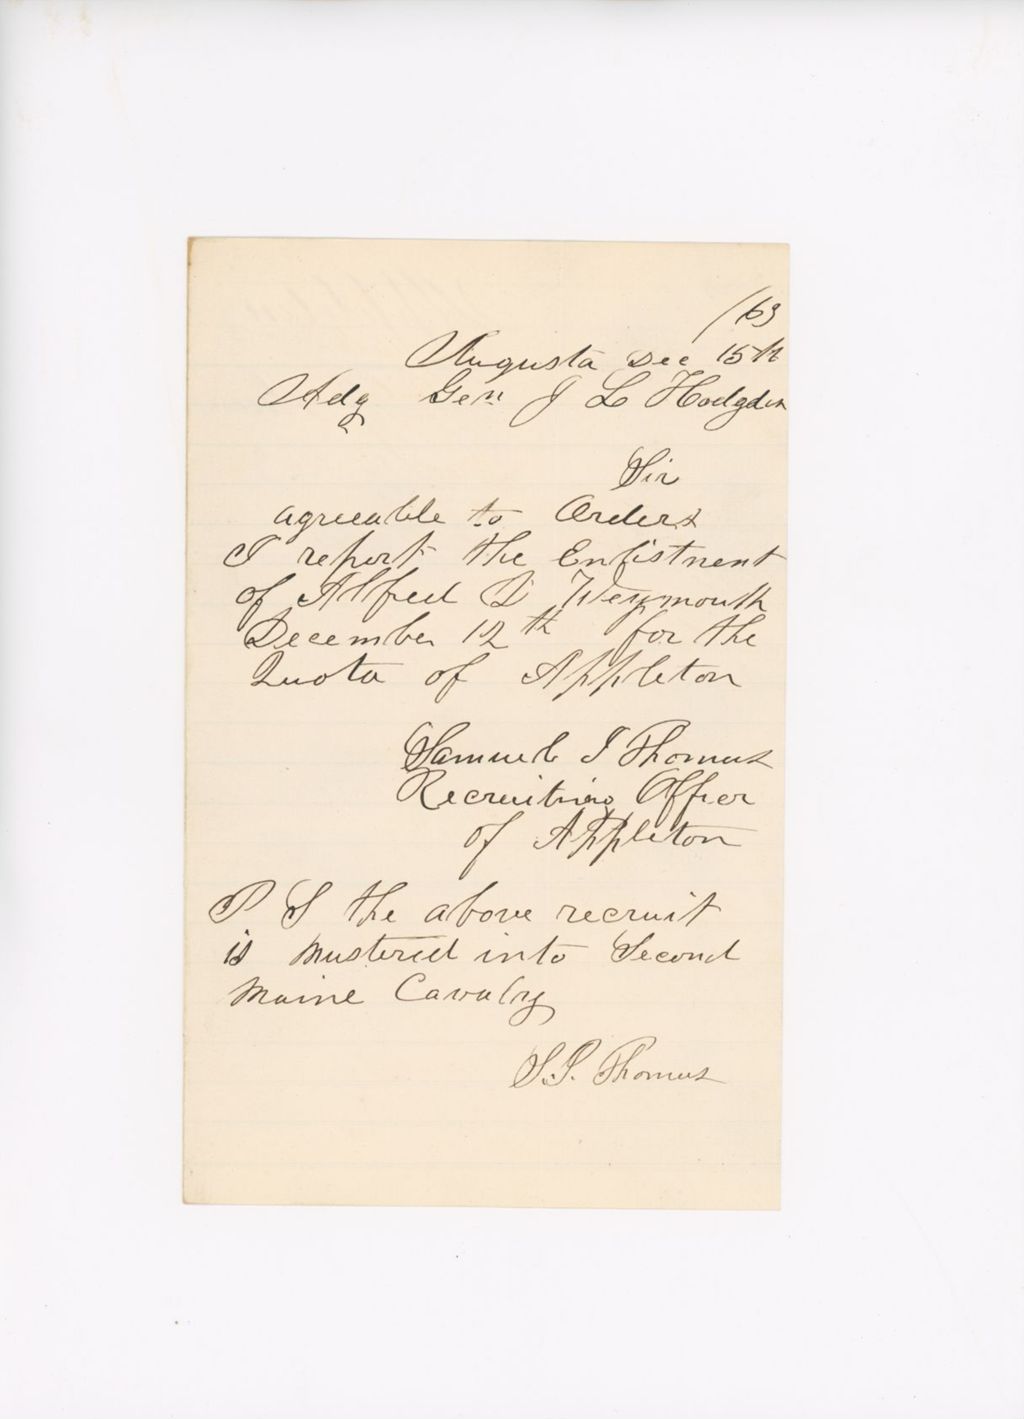 /63
Augusta Dec 15th
Adg Gen J L Hodgdon
Sir
agreeable to Orders
I report the Enlistment
of Alfred D Weymouth
December 12th for the
Quota of Appleton
Samuel J Thomas
Recruiting Officer
of Appleton
P S the above recruit
is mustered into Second
Maine Cavalry
S. J. Thomas